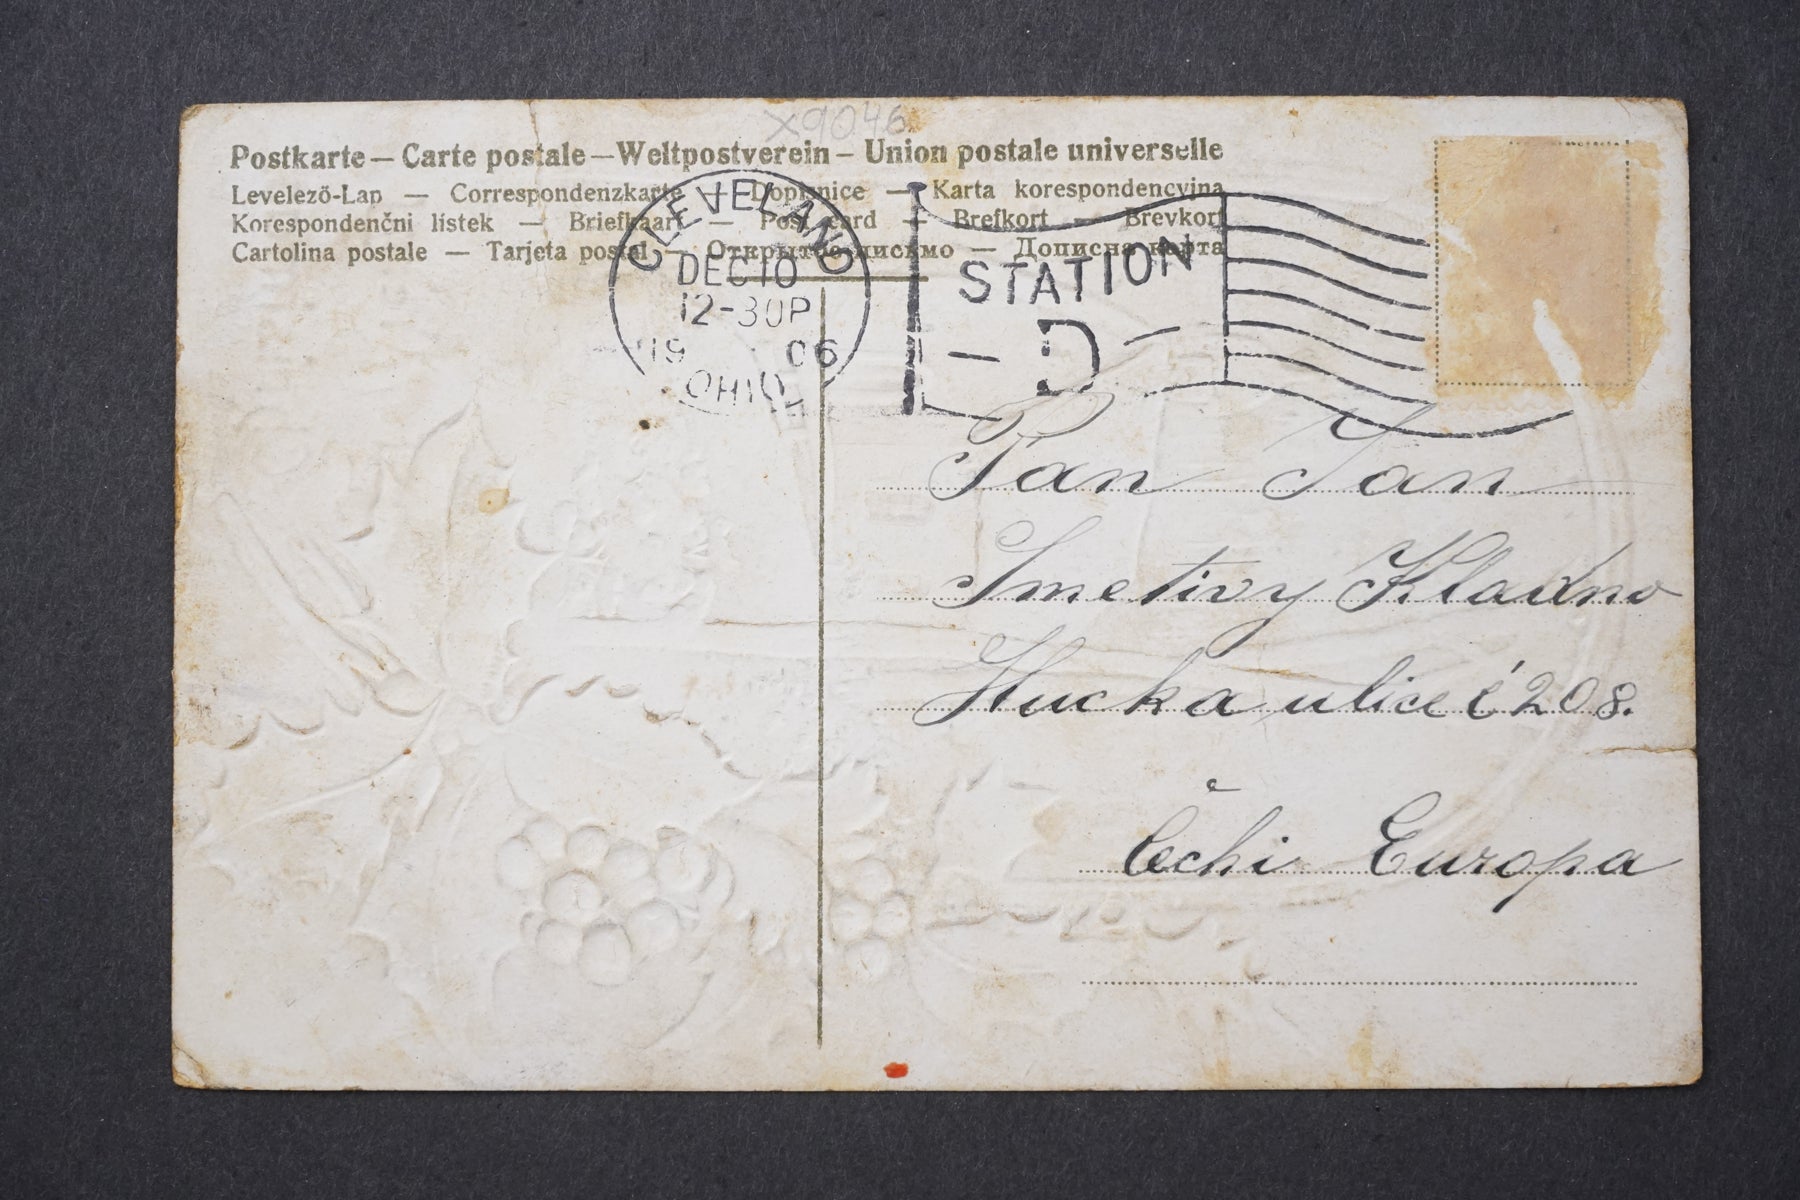 x9046
Postkarte — Carte postale — Weltpostverein — Union postale universelle
Levelező-Lap — Correspondenzkarte — Dopisnice — Karta korespondencyjna
Korespondenčni listek — Briefkaart — Post card — Brefkort — Brevkort
Cartolina postale — Tarjeta postal — Открытое письмо — Дописна карта
CLEVELAND
DEC 10
12-30P
1906
OHIO
STATION
— D —
Pan Jan
Smetivy Kladno
Hucka ulice č 208.
Čechi Europa